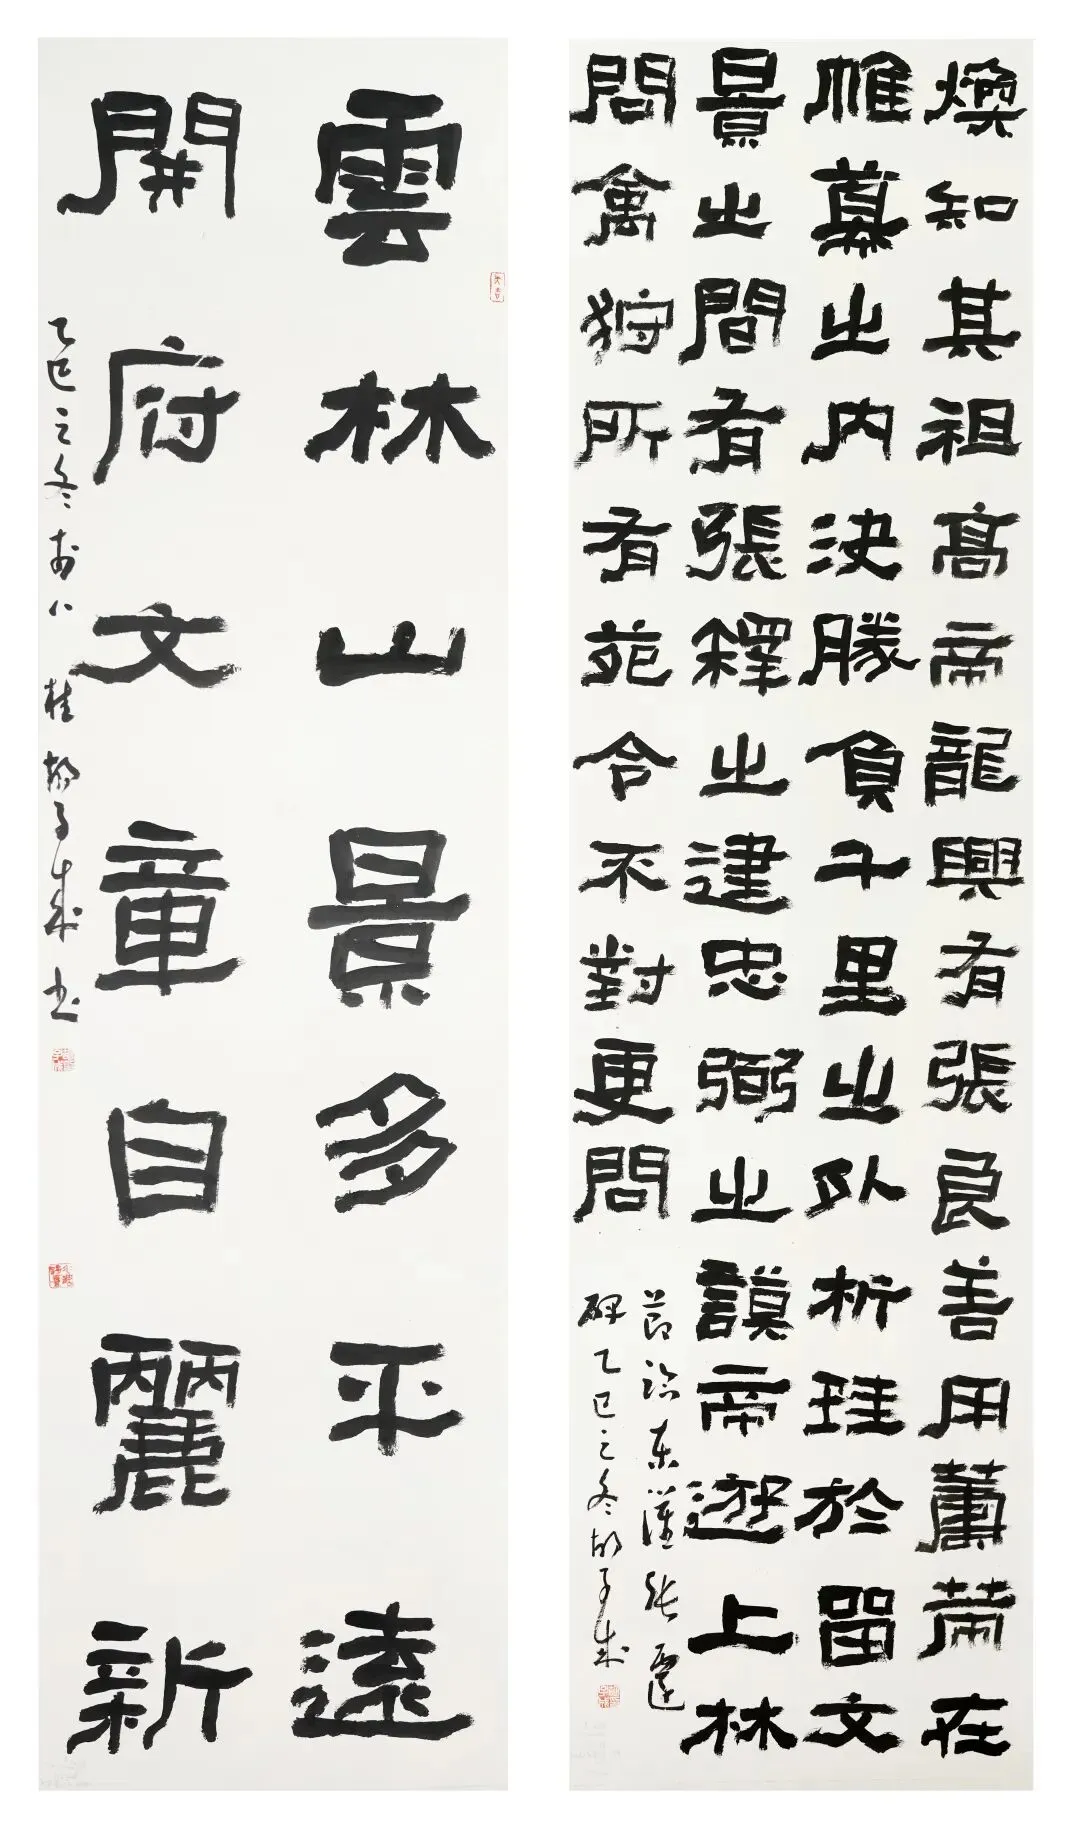 雲林山景多平遠
開府文章自麗新
乙巳之冬於八桂胡子成书
煥知其祖高帝龍興有張良善用籌策在
帷幕之内決勝負千里之外析珪於留文
景之間有張釋之建忠弼之謨帝遊上林
問禽狩所有苑令不對更問
節临東漢張遷
碑乙巳之冬胡子成